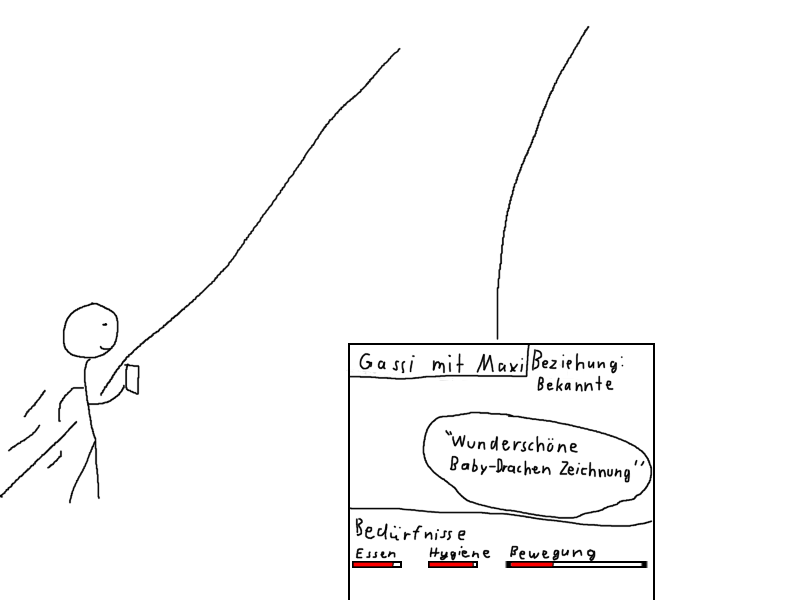 Gassi mit Maxi
Beziehung:
Bekannte
"Wunderschöne
Baby-Drachen Zeichnung"
Bedürfnisse
Essen Hygiene Bewegung